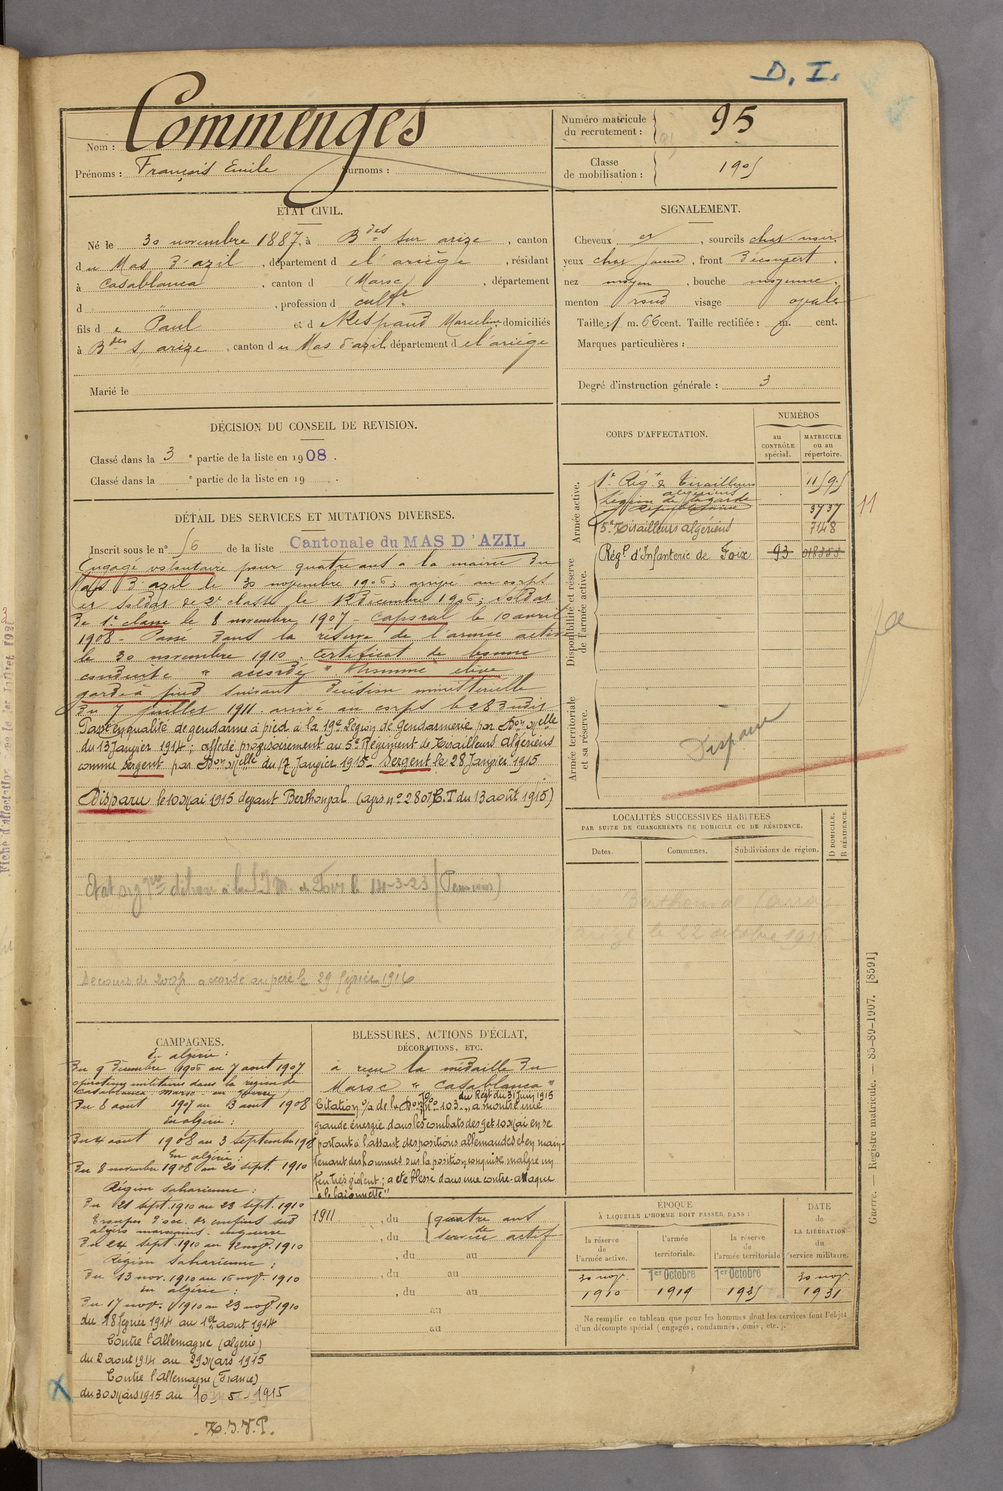 D. I.
Nom : Commenges
Prénoms : François Emile Surnoms :
Numéro matricule du recrutement : 95
Classe de mobilisation : 1905
ETAT CIVIL.
Né le 30 novembre 1887, à Bdes sur arize, canton
du Mas d'azil, département de l'ariège, résidant
à Casablanca, canton d (Maroc), département
d , profession de cultr
fils de Paul et de Respaud Marceline, domiciliés
à Bdes s, arize, canton du Mas d'azil, département de l'ariège
Marié le
SIGNALEMENT.
Cheveux et, sourcils chat. noir,
yeux chat jaune, front découvert,
nez moyen, bouche moyenne,
menton rond visage ovale
Taille : 1 m. 66 cent. Taille rectifiée : m. cent.
Marques particulières :
Degré d'instruction générale : 3
DÉCISION DU CONSEIL DE REVISION.
Classé dans la 3e partie de la liste en 1908.
Classé dans la e partie de la liste en 19 .
CORPS D'AFFECTATION.
NUMÉROS
au CONTRÔLE spécial.
MATRICULE ou au répertoire.
Armée active.
1er Régt de Tirailleurs algériens
Légion de la garde Républicaine 3737
5e Tirailleurs algériens 748
Disponibilité et réserve de l'armée active.
Régt d'Infanterie de Foix 93
Armée territoriale et sa réserve.
Disparu
11
DÉTAIL DES SERVICES ET MUTATIONS DIVERSES.
Inscrit sous le n° 56 de la liste Cantonale du MAS D'AZIL
Engagé volontaire pour quatre ans à la mairie du
Mas d'azil le 30 novembre 1906; arrivé au corps
et soldat de 2e classe le 1 Décembre 1906; soldat
de 1e classe le 8 novembre 1907 - Caporal le 10 avril
1908 - Passé dans la réserve de l'armée active
le 30 novembre 1910. Certificat de bonne
conduite "accordé". Nommé élève
garde à pied suivant décision ministérielle
du 7 juillet 1911. arrivé au corps le 28 dudit
Passé en qualité de gendarme à pied à la 19e Légion de Gendarmerie par Don Melle
du 13 Janvier 1914; affecté provisoirement au 5e Régiment de Tirailleurs Algériens
comme sergent par Don Melle du 17 Janvier 1915 - Sergent le 28 Janvier 1915
Disparu le 10 Mai 1915 devant Berthonval (avis n° 2807 C.T du 13 août 1915)
Secours de 200f accordé au père le 29 février 1916
LOCALITÉS SUCCESSIVES HABITÉES
PAR SUITE DE CHANGEMENTS DE DOMICILE OU DE RÉSIDENCE.
Dates. Communes. Subdivisions de région. D DOMICILE. R RÉSIDENCE
CAMPAGNES.
En algérie :
Du 9 Décembre 1906 au 7 aout 1907
opérations militaires dans la région de
Casablanca. Maroc. en guerre
Du 8 août 1907 au 3 aout 1908
En algérie :
Du 4 août 1908 au 3 Septembre 1908
En algérie :
Du 8 novembre 1908 au 20 sept. 1910
Région Saharienne :
Du 21 sept. 1910 au 23 sept. 1910
Du 24 sept. 1910 au 12 nov. 1910
Région Saharienne :
Du 13 nov. 1910 au 16 nov. 1910
en algérie :
Du 17 nov. 1910 au 29 nov. 1910
du 18 février 1914 au 1er aout 1914
Contre l'allemagne (algérie)
du 2 aout 1914 au 29 Mars 1915
Contre l'allemagne (France)
du 30 Mars 1915 au 10-5-1915
BLESSURES, ACTIONS D'ÉCLAT,
DÉCORATIONS, ETC.
a reçu la médaille du
Maroc "Casablanca"
Citation a montré une
grande énergie dans les combats des 9 et 10 Mai en se
portant à l'assaut des positions allemandes et en main-
tenant des hommes sur la position conquise malgré un
feu très violent; a été blessé dans une contre-attaque
à la baïonnette"
1911, du quatre ans
, du de service actif
, du au
, du au
, du au
au
au
ÉPOQUE
À LAQUELLE L'HOMME DOIT PASSER, DANS :
la réserve de l'armée active. l'armée territoriale. la réserve de l'armée territoriale
DATE de LA LIBÉRATION du service militaire.
30 nov. 1910 1er Octobre 1919 1er Octobre 1925 30 nov. 1931
Ne remplir ce tableau que pour les hommes dont les services font l'objet
d'un décompte spécial (engagés, condamnés, omis, etc.).
Guerre. — Registre matricule. — 85-89-1907. [8591]